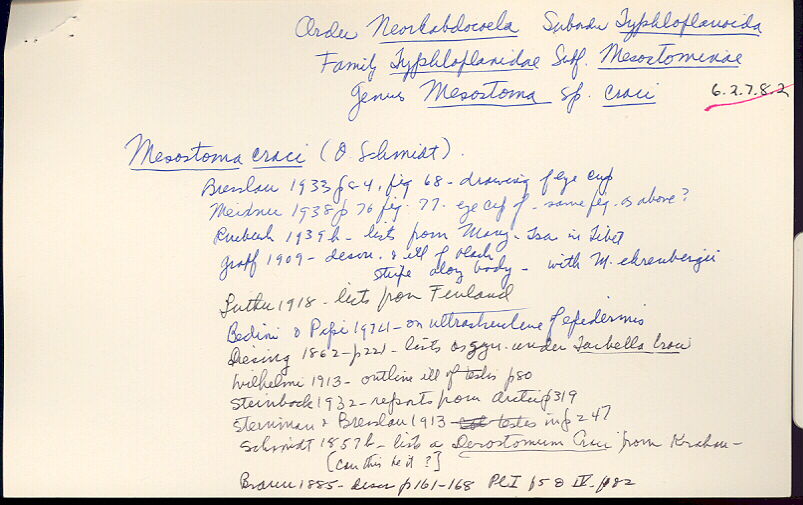 Order Neorhabdocoela Suborder Typhloplanoida
Family Typhloplanidae Subf. Mesostominae
Genus Mesostoma sp. craci
6.2.7.8.2
Mesostoma craci (O Schmidt).
Bresslau 1933 p84, fig 68 - drawing of eye cup
Meixner 1938 p 76 fig. 77. eye cup - same fig. as above?
Ruebush 1939 b - lists from Mang-tsa in Tibet
Graff 1909 - descr. & ill of black
stripe along body - with M. ehrenbergii
Luther 1918 - lists from Finland
Bedini & Papi 1974 - on ultrastructure of epidermis
Diesing 1862 - p221 - lists as syn. under Turbella Craci
Wilhelmi 1913 - outline ill of testis p80
Steinbock 1932 - reports from arctic p319
Steinman & Bresslau 1913 - testes in p 247
Schmidt 1857 b - lists a Derostomum Craci from Krakau -
[Can this be it?]
Braun 1885 - descr p161-168 Pl I p5 & IV - p82